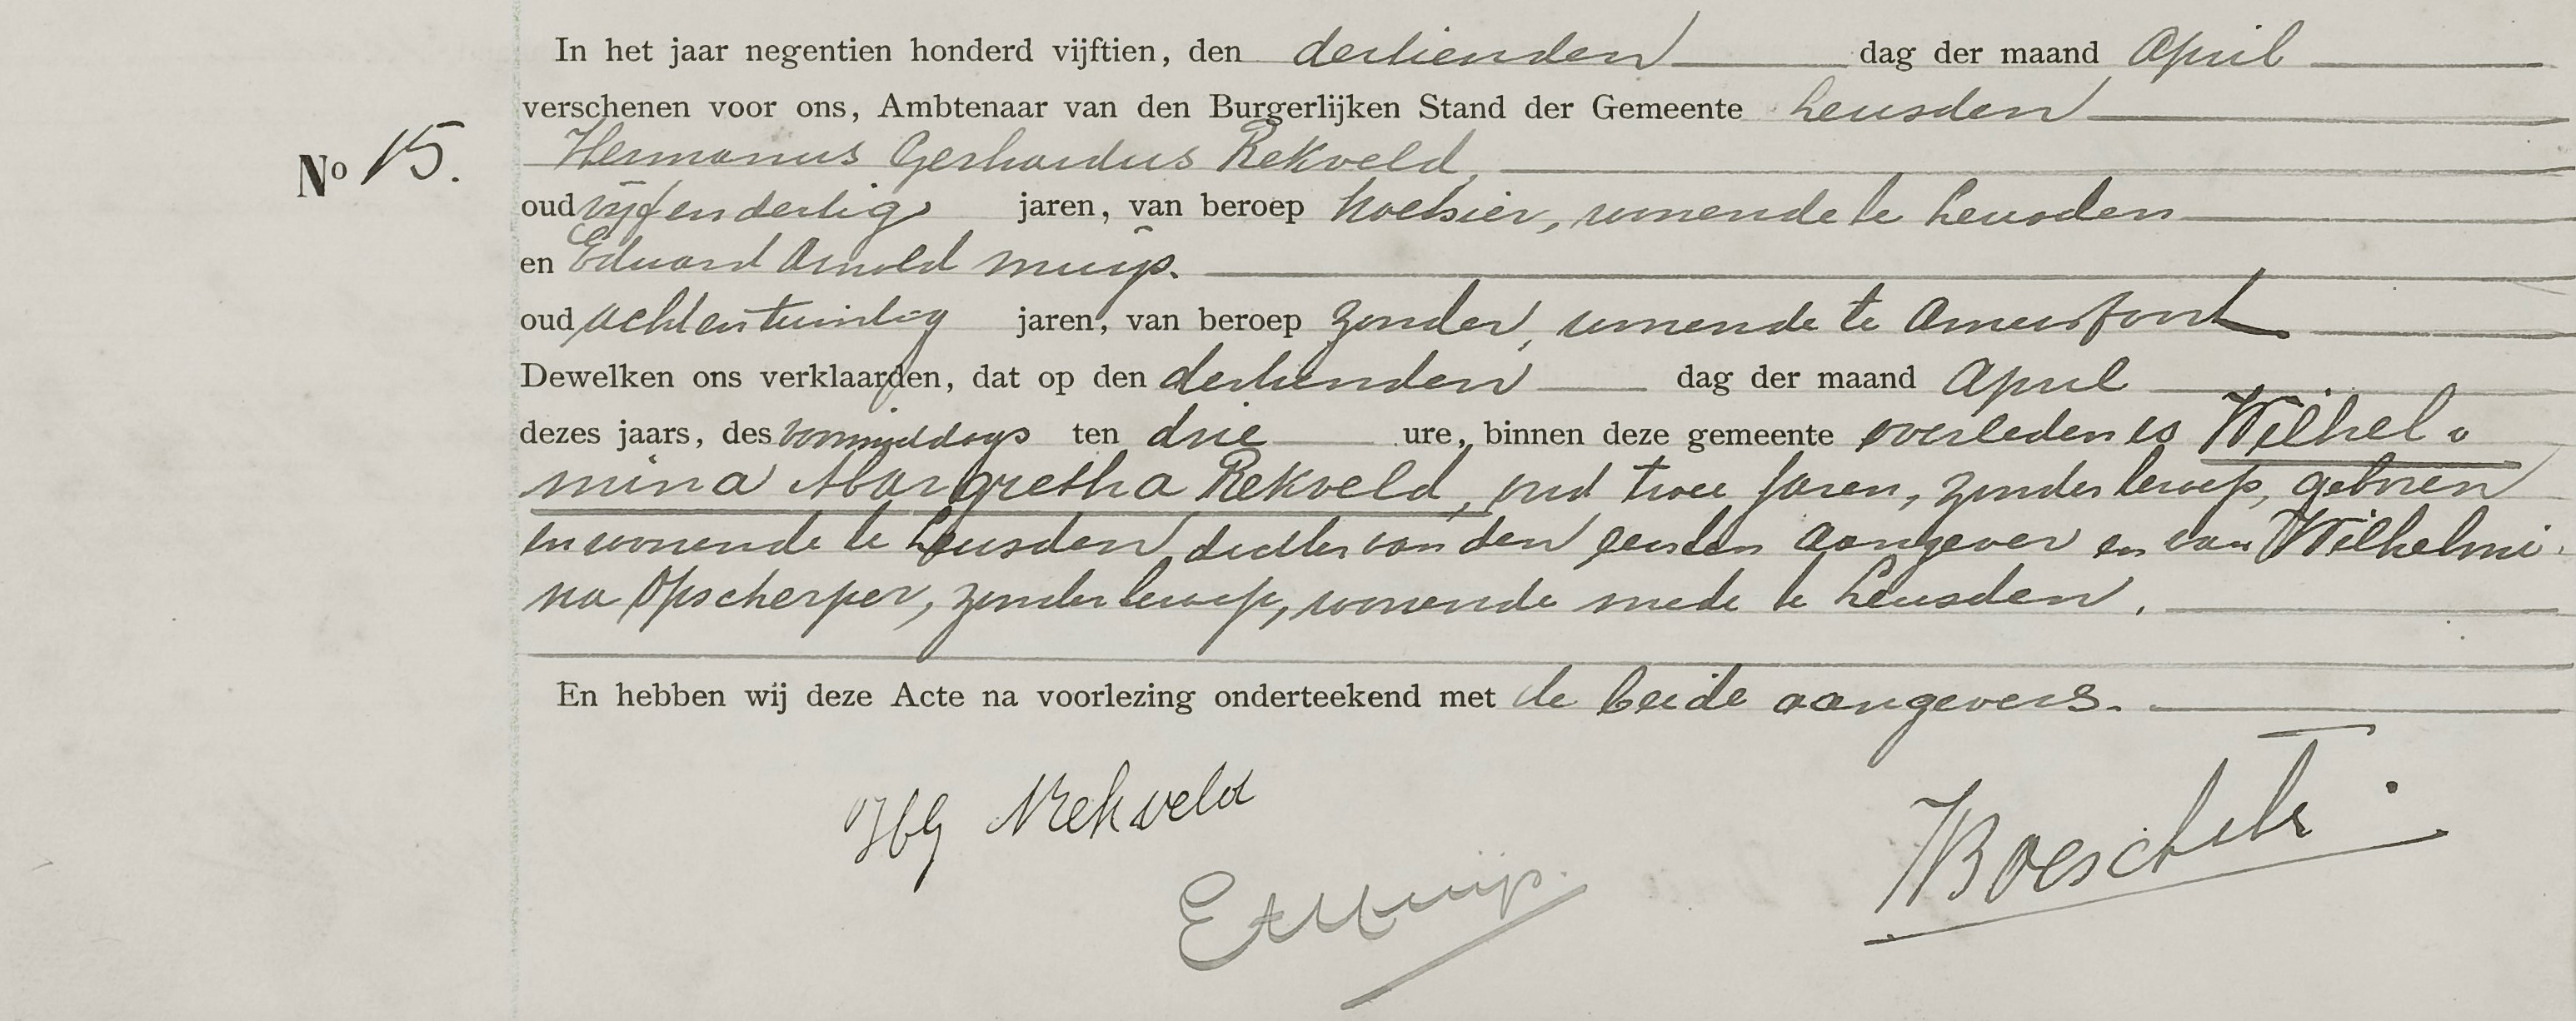 In het jaar negentien honderd vijftien, den dertienden dag der maand April
verschenen voor ons, Ambtenaar van den Burgerlijken Stand der Gemeente Leusden
No 15.
Hermanus Gerhardus Rekveld,
oud vijfendertig jaren, van beroep koetsier, wonende te Leusden
en Eduard Arnold Muijs.
oud achtentwintig jaren, van beroep zonder, wonende te Amersfoort
Dewelken ons verklaarden, dat op den dertienden dag der maand April
dezes jaars, des voormiddags ten drie ure, binnen deze gemeente overleden is Wilhel-
mina Margretha Rekveld, oud twee jaren, zonder beroep, geboren
en wonende te Leusden, dochter van den eersten aangever en van Wilhelmi-
na Opscherper, zonder beroep, wonende mede te Leusden.
En hebben wij deze Acte na voorlezing onderteekend met de beide aangevers.
HG Rekveld